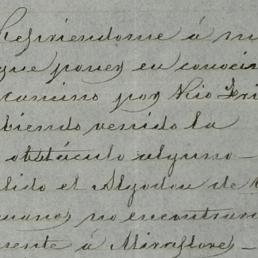 Refiriendome á m
que poner en conoci
camino por Rio Gri
biendo venido la
obstáculo alguno
lido el Algodon de
uano, no encontran
mente á Miraflores